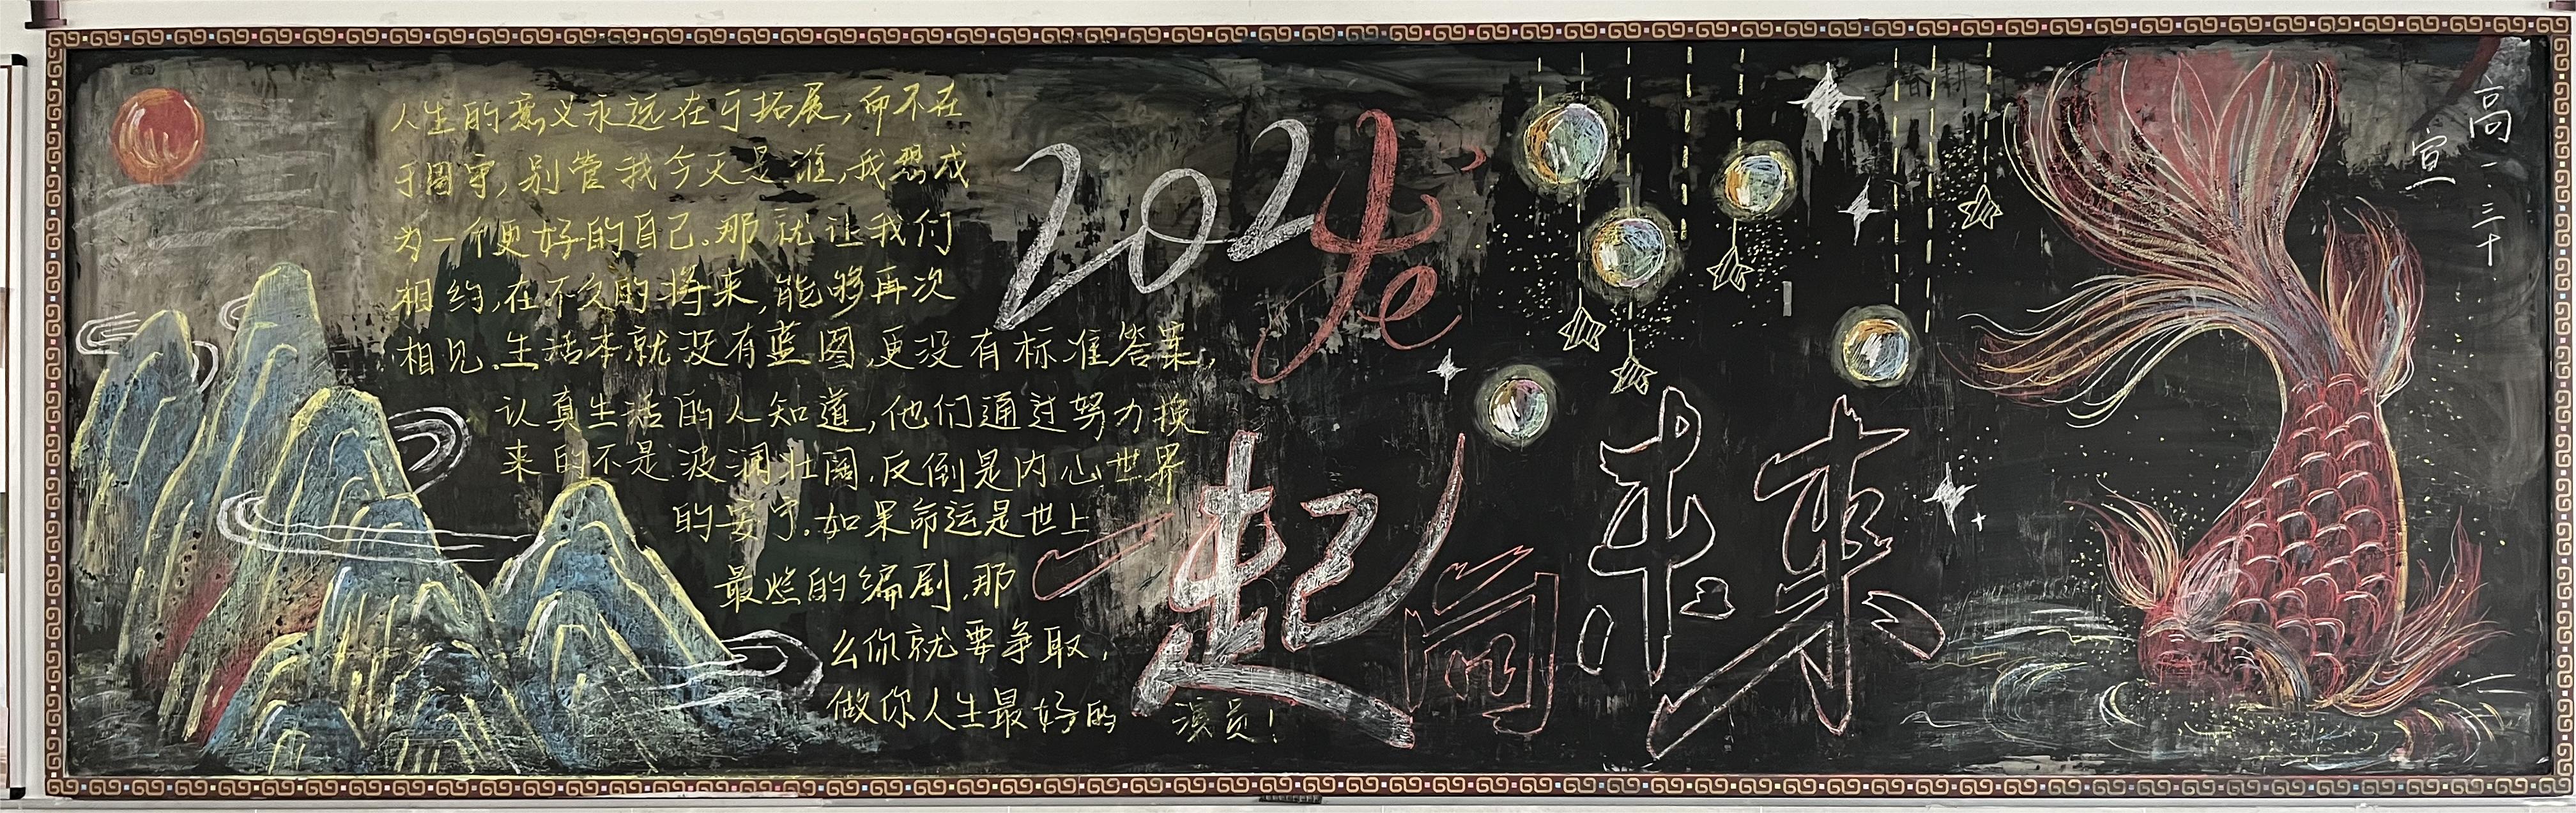 人生的意义永远在于拓展，而不在
于固守，别管我今天是谁，我想成
为一个更好的自己。那就让我们
相约，在不久的将来，能够再次
相见。生活本就没有蓝图，更没有标准答案，
认真生活的人知道，他们通过努力换
来的不是波澜壮阔，反倒是内心世界
的安宁。如果命运是世上
最烂的编剧，那
么你就要争取，
做你人生最好的 演员！
2024
一起向未来
高一·三十
宣